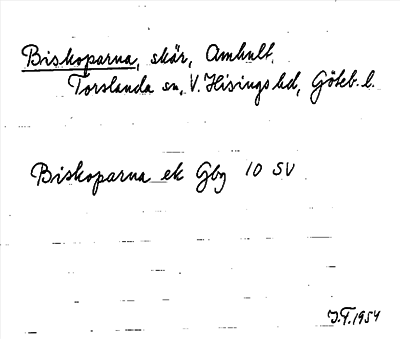 Biskoparna, skär, Amhult,
Torslanda sn, V. Hisings hd, Göteb. l.
Biskoparna ek Gbg 10 SV
J.T. 1954